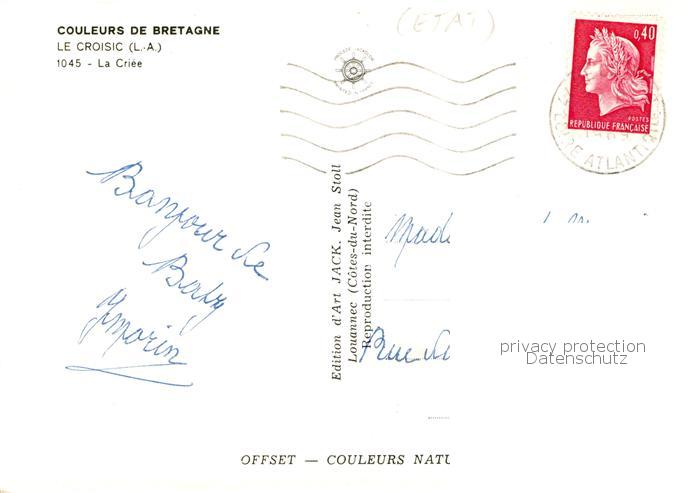 COULEURS DE BRETAGNE
LE CROISIC (L.-A.)
1045 - La Criée
(ETAT)
0,40
POSTES
REPUBLIQUE FRANÇAISE
LOIRE ATLANTIQUE
Bonjour de
Batz
Ymorin
Edition d'Art JACK. Jean Stoll
Louannec (Côtes-du-Nord)
Reproduction interdite
Mad
Rue de
privacy protection
Datenschutz
OFFSET — COULEURS NATU